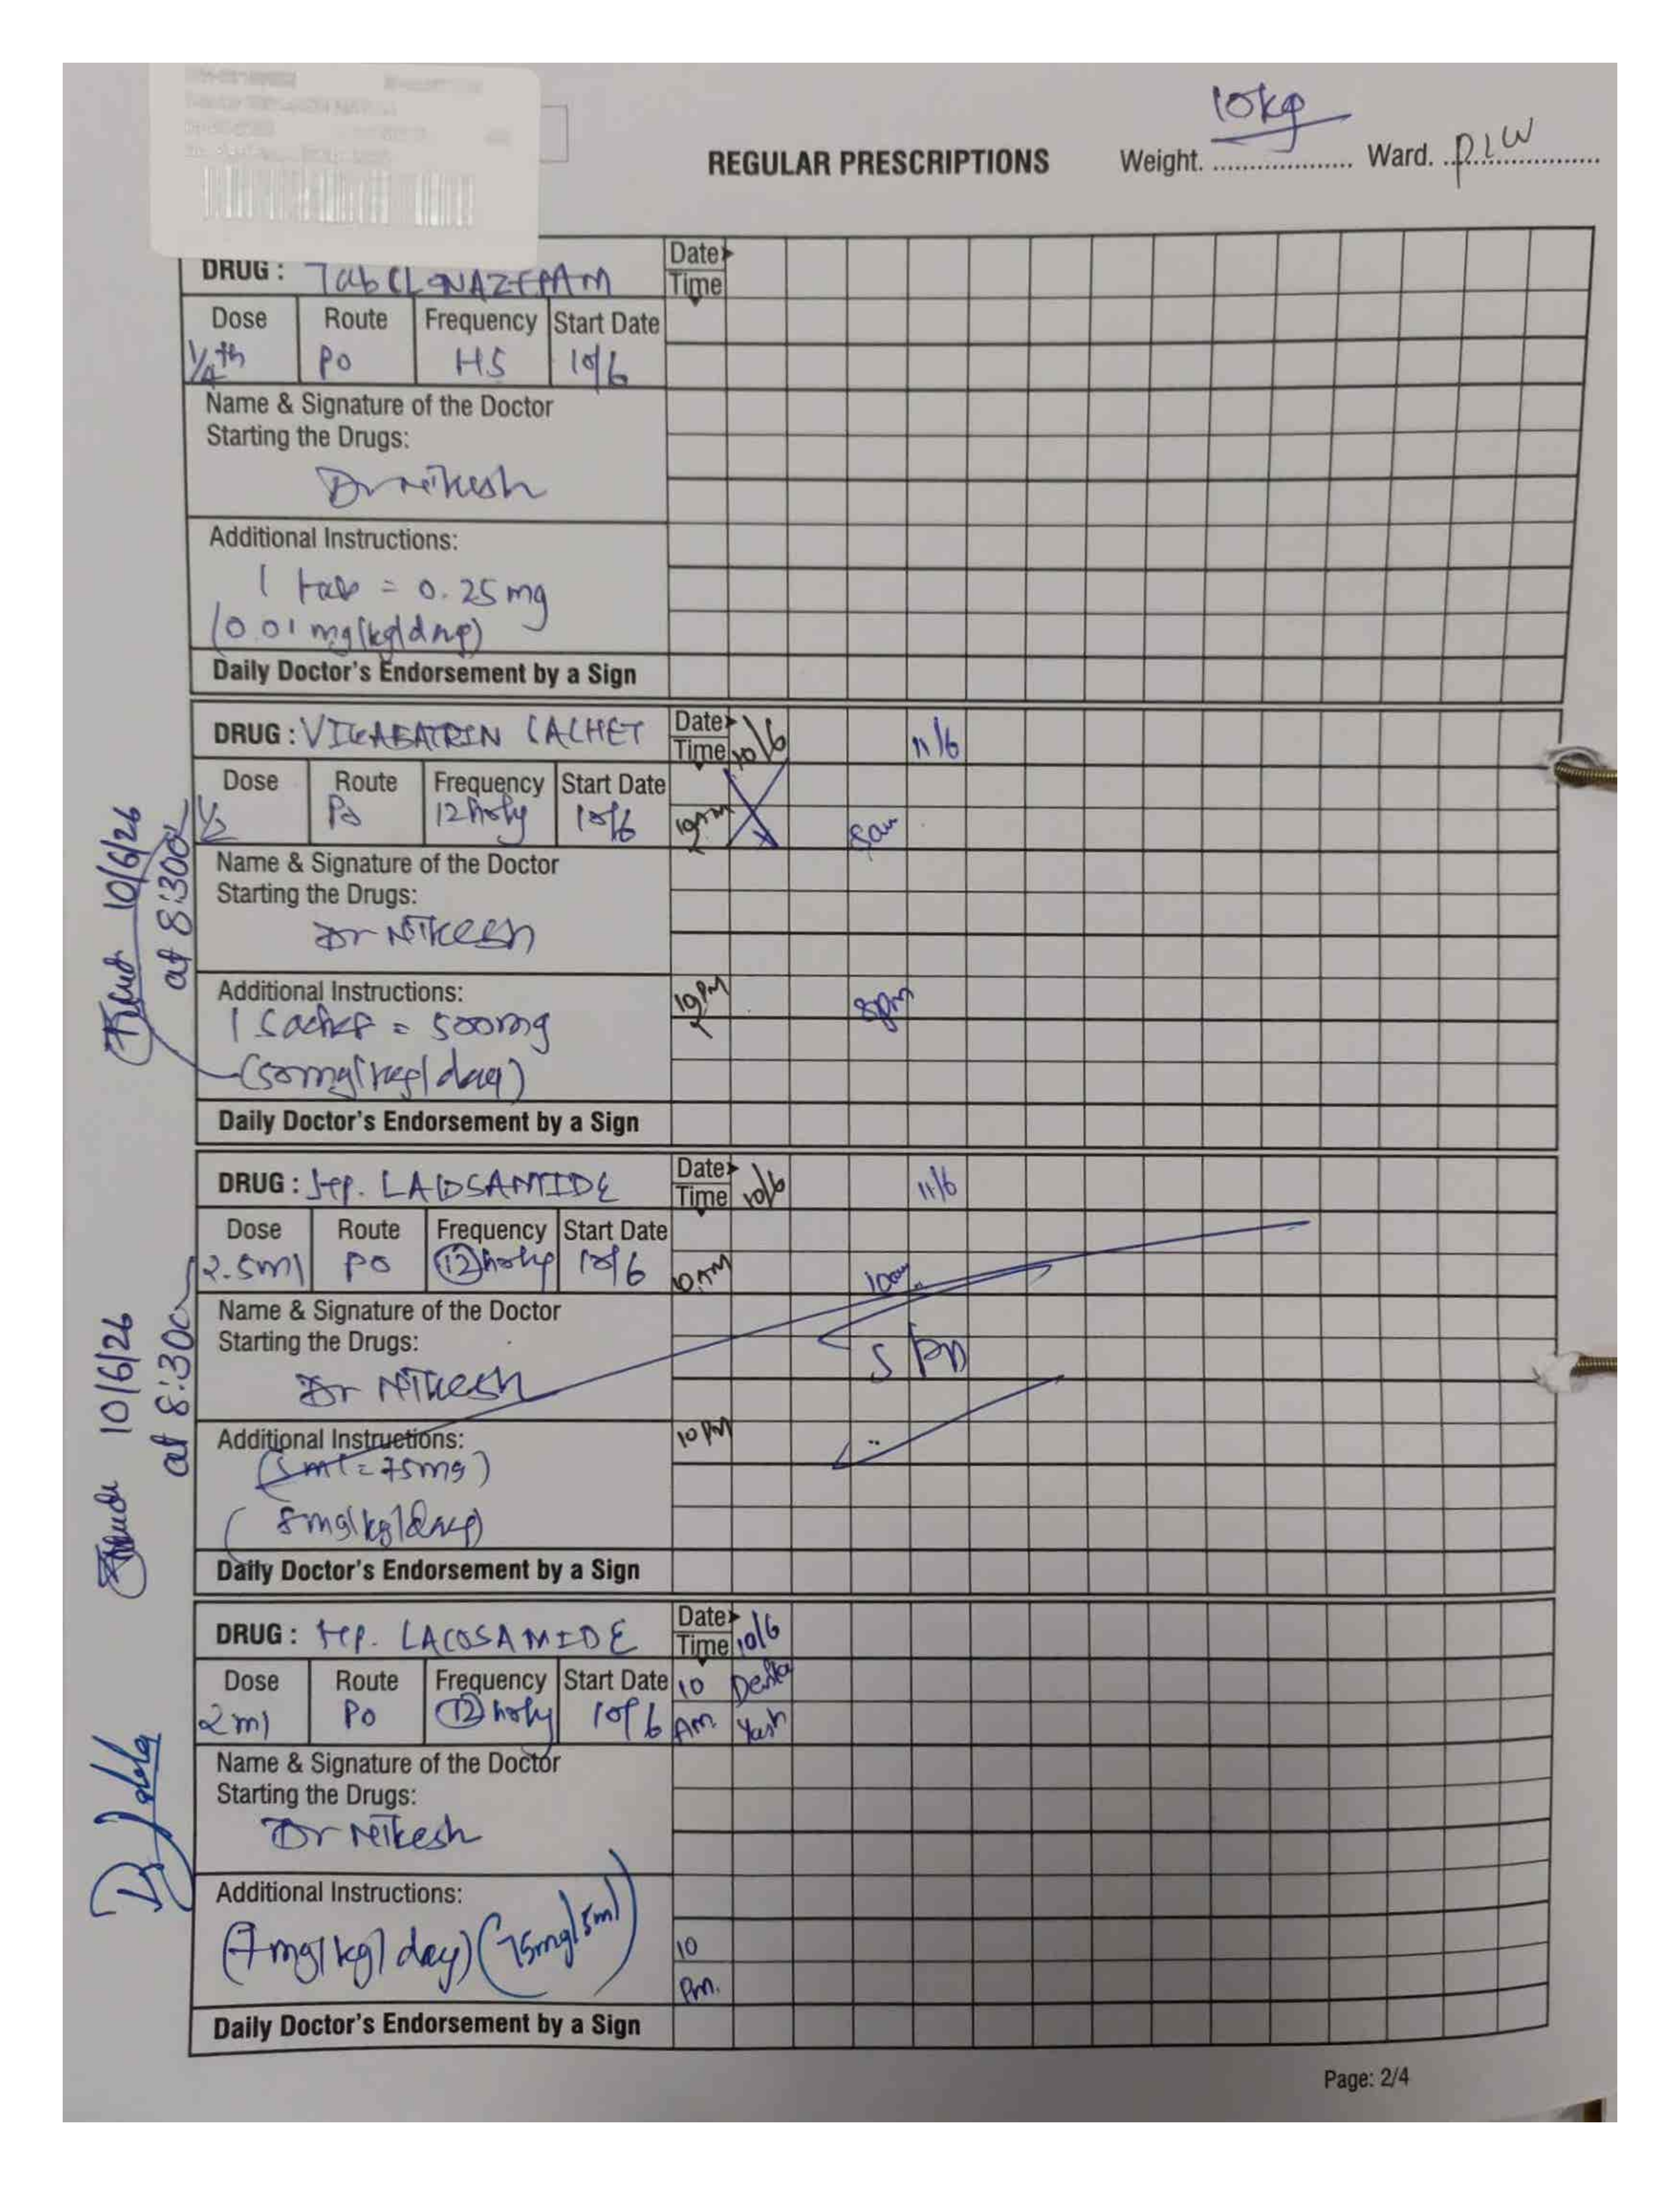 10kg
REGULAR PRESCRIPTIONS Weight. .................. Ward. ..................
DRUG : Tab CLONAZEPAM Date
Time
Dose Route Frequency Start Date
1/4th PO HS 10/6
Name & Signature of the Doctor
Starting the Drugs:
Dr Nikesh
Additional Instructions:
1 tab = 0.25 mg
(0.01 mg/kg/day)
Daily Doctor's Endorsement by a Sign
DRUG : VIGABATRIN SACHET Date 10/6 11/6
Time
Dose Route Frequency Start Date
1/2 Po 12 hrly 10/6 10AM 8am
Name & Signature of the Doctor
Starting the Drugs:
Dr Nikesh
Additional Instructions: 10PM 8pm
1 Sachet = 500mg
(50mg/kg/day)
Daily Doctor's Endorsement by a Sign
10/6/26
at 8:30
DRUG : Syp. LACOSAMIDE Date 10/6 11/6
Time
Dose Route Frequency Start Date
2.5ml PO 12 hrly 10/6 10AM 10am
Name & Signature of the Doctor
Starting the Drugs:
Dr Nikesh
Additional Instructions: 10PM
(5ml = 75mg)
(8mg/kg/day)
Daily Doctor's Endorsement by a Sign
10/6/26
at 8:30
DRUG : Syp. LACOSAMIDE Date 10/6
Time
Dose Route Frequency Start Date 10
2ml PO 12 hrly 10/6 AM Yash
Name & Signature of the Doctor
Starting the Drugs:
Dr Nikesh
Additional Instructions:
(7mg/kg/day) (75mg/5ml) 10
Pm.
Daily Doctor's Endorsement by a Sign
Page: 2/4